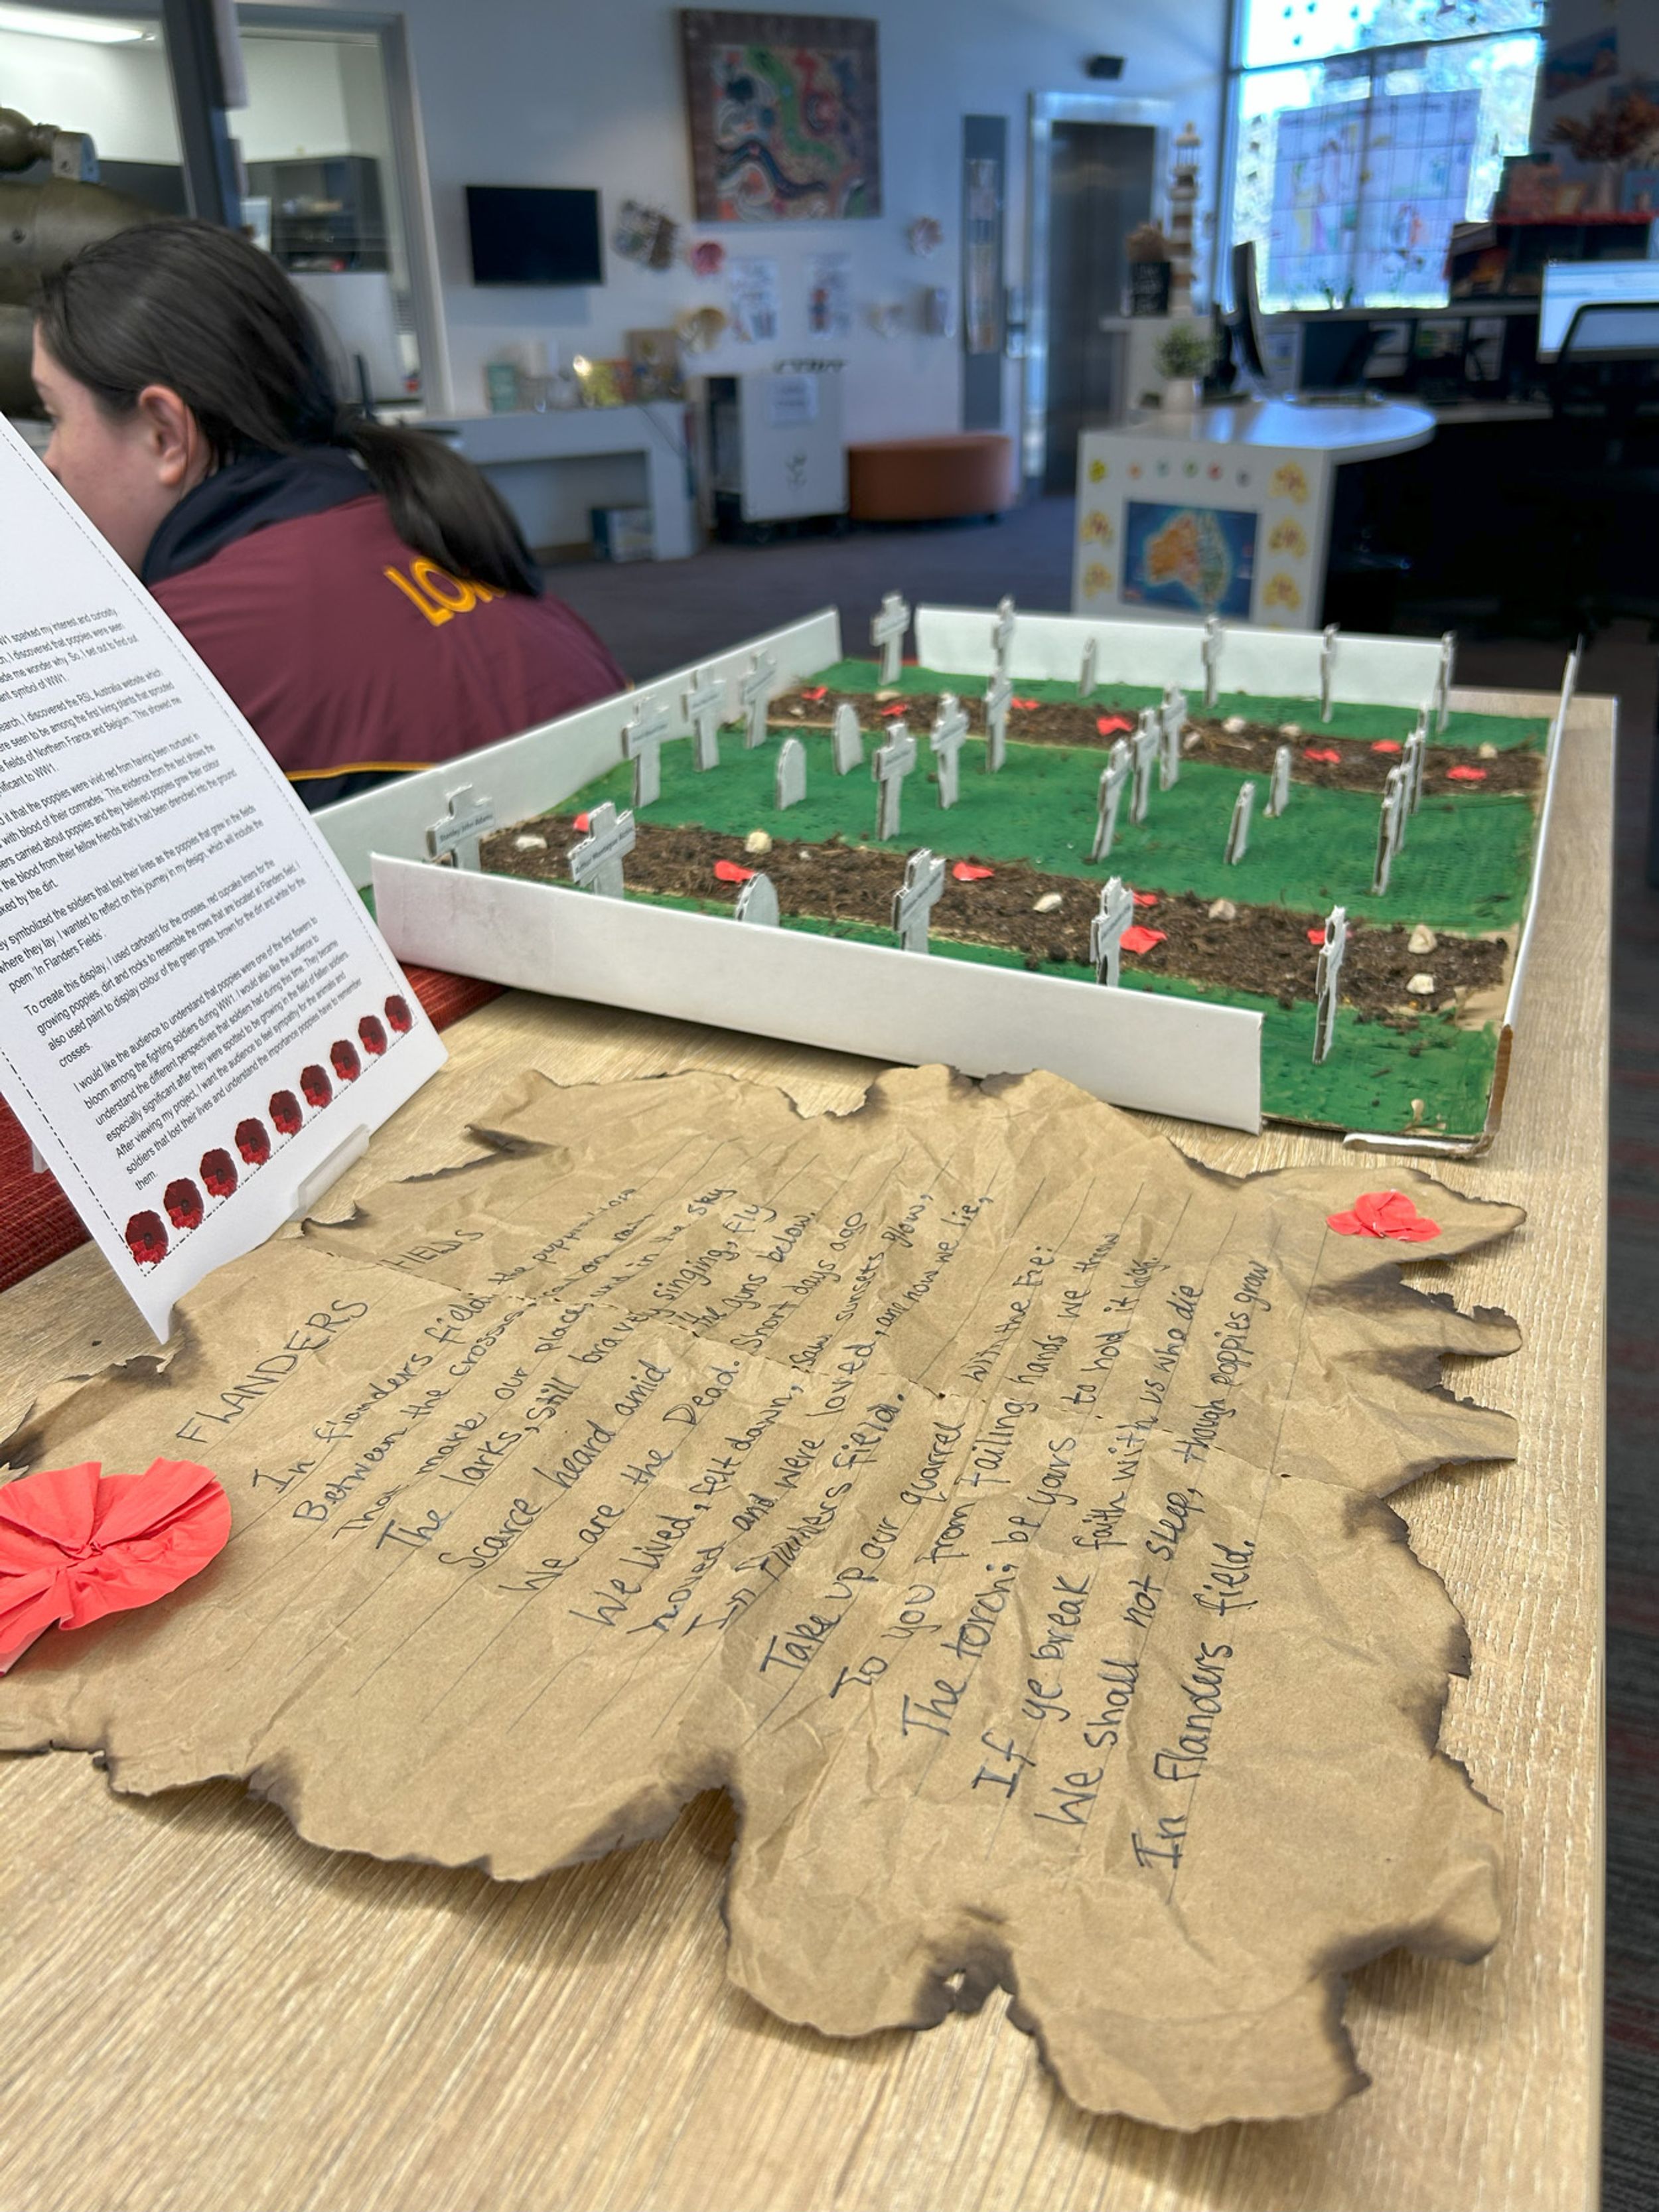 LON
W1 sparked my interest and curiosity.
I discovered that poppies were seen
made me wonder why. So, I set out to find
symbol of WW1.
search, I discovered the RSL Australia website which
were seen to be among the first living plants that sprouted
fields of Northern France and Belgium. This showed me
significant to WW1.
it that the poppies were vivid red from having been nurtured in
with blood of their comrades. This evidence from the text shows the
carried about poppies and they believed poppies grew their colour
the blood from their fellow friends that's had been drenched into the ground
by the dirt.
symbolized the soldiers that lost their lives as the poppies that grew in the fields
where they lay. I wanted to reflect on this journey in my design, which will include the
poem 'In Flanders Fields'.
To create this display, I used carboard for the crosses, red cupcake liners for the
growing poppies, dirt and rocks to resemble the rows that are located at Flanders field. I
also used paint to display colour of the green grass, brown for the dirt and white for the
crosses.
I would like the audience to understand that poppies were one of the first flowers to
bloom among the fighting soldiers during WW1. I would also like the audience to
understand the different perspectives that soldiers had during this time. They became
especially significant after they were spotted to be growing in the field of fallen soldiers
After viewing my project, I want the audience to feel sympathy for the animals and
soldiers that lost their lives and understand the importance poppies have to remember
them.
FLANDERS FIELDS
In flanders field, the poppies
Between the crosses, row on row
That mark our place, and in the sky
The larks, still bravely singing, fly
Scarce heard amid the guns below.
We are the Dead. Short days ago
We Lived, felt dawn, saw sunsets glow,
Loved and were loved, and now we lie,
In Flanders field.
Take up our quarrel with the Foe:
To you from failing hands we throw
The torch; be yours to hold it high.
If ye break faith with us who die
We shall not sleep, though poppies grow
In Flanders field.